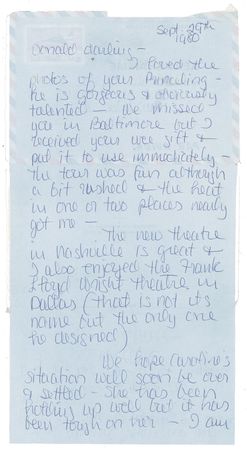 Sept. 29th
1980
Donald darling -
I loved the
photos of your Princeling -
he is gorgeous & obviously
talented - We missed
you in Baltimore but I
received your gift &
put it to use immediately -
the tour was fun although
a bit rushed & the heat
in one or two places nearly
got me -
The new theatre
in Nashville is great &
I also enjoyed the Frank
Lloyd Wright Theatre in
Dallas (that is not its
name but the only one
he designed)
We hope Caroline's
situation will soon be over
& settled - She has been
holding up well but it has
been tough on her - I am